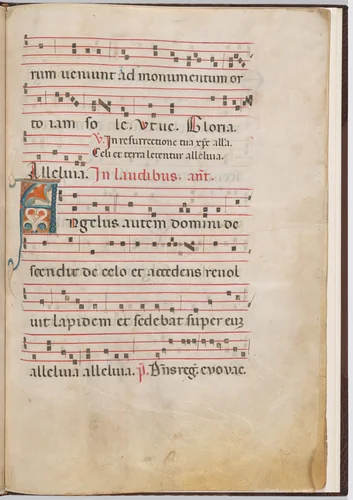 rum veniunt ad monumentum or
to iam so le. vt ue. Gloria.
V. In resurrectione tua xpe alla.
Celi et terra letentur alleluia.
Alleluia. In laudibus. ant.
Angelus autem domini de
scendit de celo et accedens reuol
uit lapidem et sedebat super eum
alleluia alleluia. p. Dns reg. evovae.